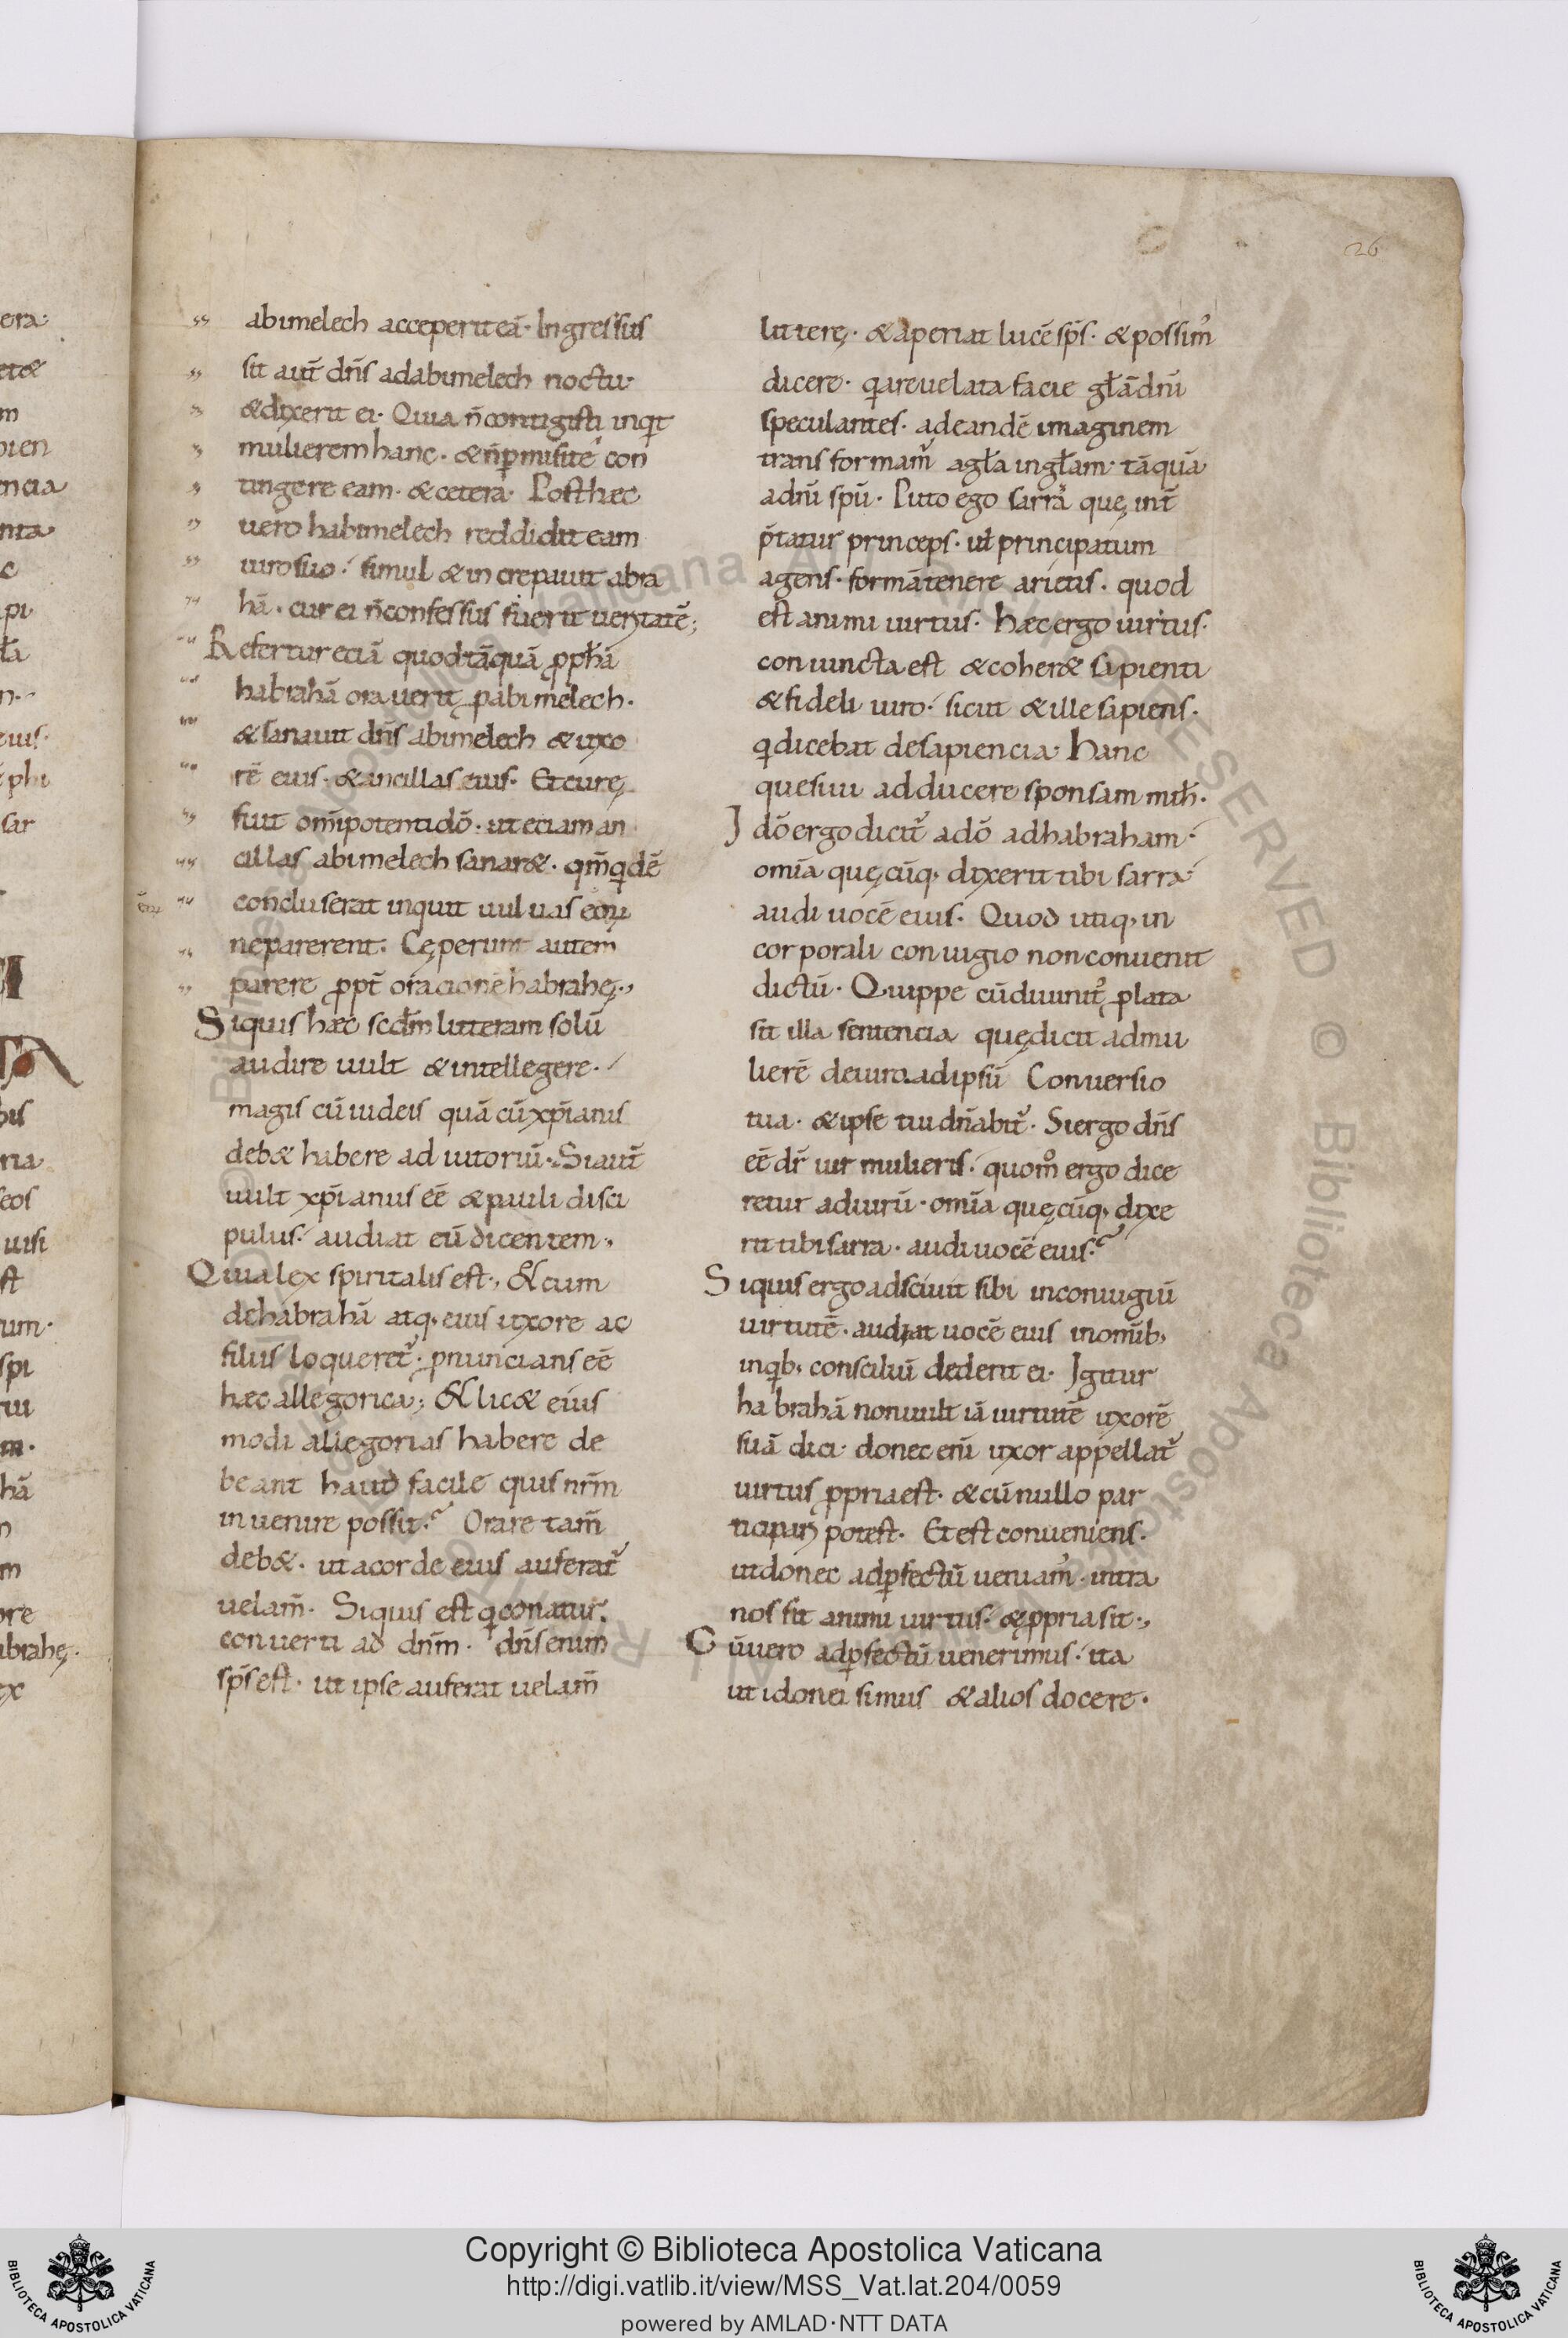 26
abimelech acceperit eā· Ingressus
sit aut̄ dn̄s adabimelech noctu·
&dixerit ei· Quia n̄ contigisti inqͥt
mulierem hanc· &n̄ ꝑmisi te con
tingere eam· &cetera· Post hæc
uero habimelech reddidit eam
uiro suo· simul &increpauit abra
hā· cur ei n̄ confessus fuerit ueritatē;
Refertur eciā quod tāquā ꝓph̄a
habrahā orauerit ꝓ abimelech·
&sanauit dn̄s abimelech &uxo
rē eius· &ancillas eius· Et curę
fuit omīpotenti dō· ut eciam an
cillas abimelech sanar&· qm̄ qͥdē
concluserat inquit uuluas eoꝝ
ne parerent· Cęperunt autem
parere ꝓpt̄ oracionē habrahę·,
Siquis hæc scdm̄ litteram solū
audire uult &intellegere·
magis cū iudeis quā cū xp̄ianis
deb& habere adiutoriū· Si aut̄
uult xp̄ianus eē &pauli disci
pulus· audiat eū dicentem·,
Quia lex spiritalis est·, &cum
de habrahā atq; eius uxore ac
filiis loqueret᷑· ꝓnuncians eē
hæc allegorica; &lic& eius
modi allegorias habere de
beant haud facile quis nr̄m
inuenire possit? Orare tam̄
deb&· ut a corde eius auferat᷑
uelam̄· Siquis est qͥ conatur
conuerti ad dn̄m· dn̄s enim
sp̄s est· ut ipse auferat uelam̄
litterę· &aperiat lucē sp̄s· &possim᷒
dicere· qͥa reuelata facie gl̄ā dn̄i
speculantes· ad eandē imaginem
transformam᷑ a gl̄a in gl̄am· tāquā
a dn̄i spū· Puto ego sarra quę int̄
p̄tatur princeps· ul̄ principatum
agens· formā tenere aretis· quod
est animi uirtus· Hæc ergo uirtus·
coniuncta est &coher& sapienti
&fideli uiro· sicut &ille sapiens·
qͥ dicebat de sapiencia· Hanc
quesiui adducere sponsam mih̄·
Idō ergo dicit᷑ a dō ad habraham·
omīa quęcūq; dixerit tibi sarra
audi uocē eius· Quod utiq; in
corporali coniugio non conuenit
dictū· Quippe cū diuinit᷒ ꝓlata
sit illa sentencia quę dicit ad mu
lierē de uiro· ad ipsū Conuersio
tua· &ipse tui dn̄abit᷑· Si ergo dn̄s
eē dr̄ uir mulieris· quom̊ ergo dice
retur ad uirū· omīa quęcūq; dixe
rit tibi sarra· audi uocē eius?
Siquis ergo adsciuit sibi in coniugiū
uirtutē· audiat uocē eius in om̄ib;
in qͥb; consciliū dederit ei· Igitur
habrahā non uult iā uirtutē uxorē
suā dici· donec enī uxor appellat᷑
uirtus ꝓpria est· &cū nullo par
ticipari potest· Et est conueniens·
ut donec ad ꝑfectū ueniam᷒· intra
nos sit animi uirtus· &ꝓpria sit·,
Cū uero ad ꝑfectū uenerimus· ita
ut idonei simus &alios docere·
Copyright © Biblioteca Apostolica Vaticana
http://digi.vatlib.it/view/MSS_Vat.lat.204/0059
powered by AMLAD·NTT DATA